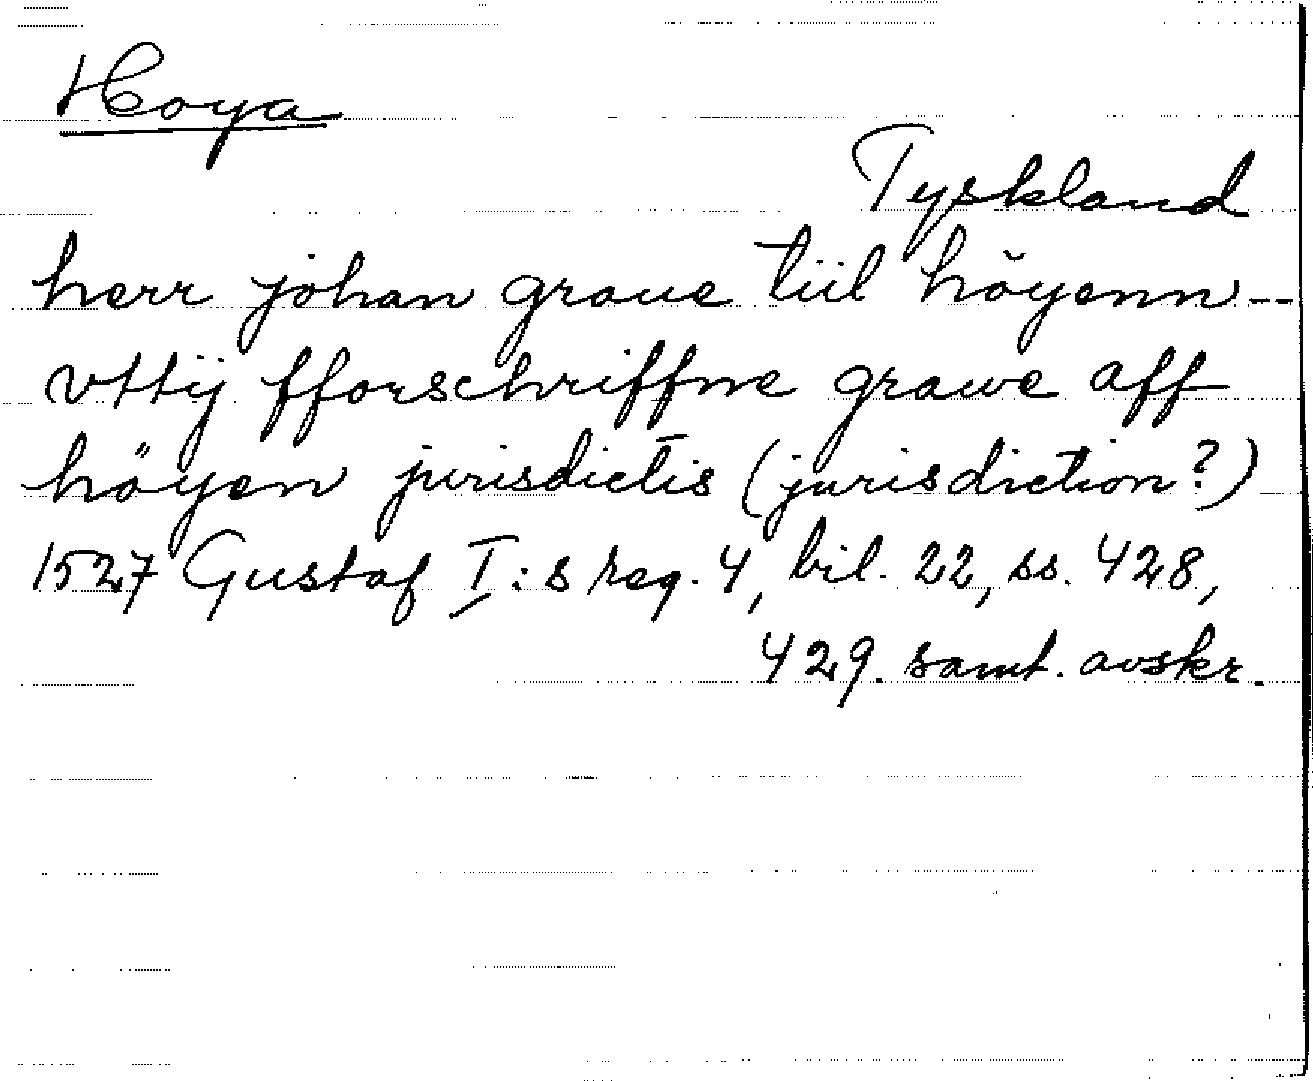 Hoya
Tyskland
herr johan graue tiil höyenn --
vttij fforschriffne grawe aff
höyen jurisdictis (jurisdiction?)
1527 Gustaf I:s reg. 4, bil. 22, ss. 428,
429. samt. avskr.